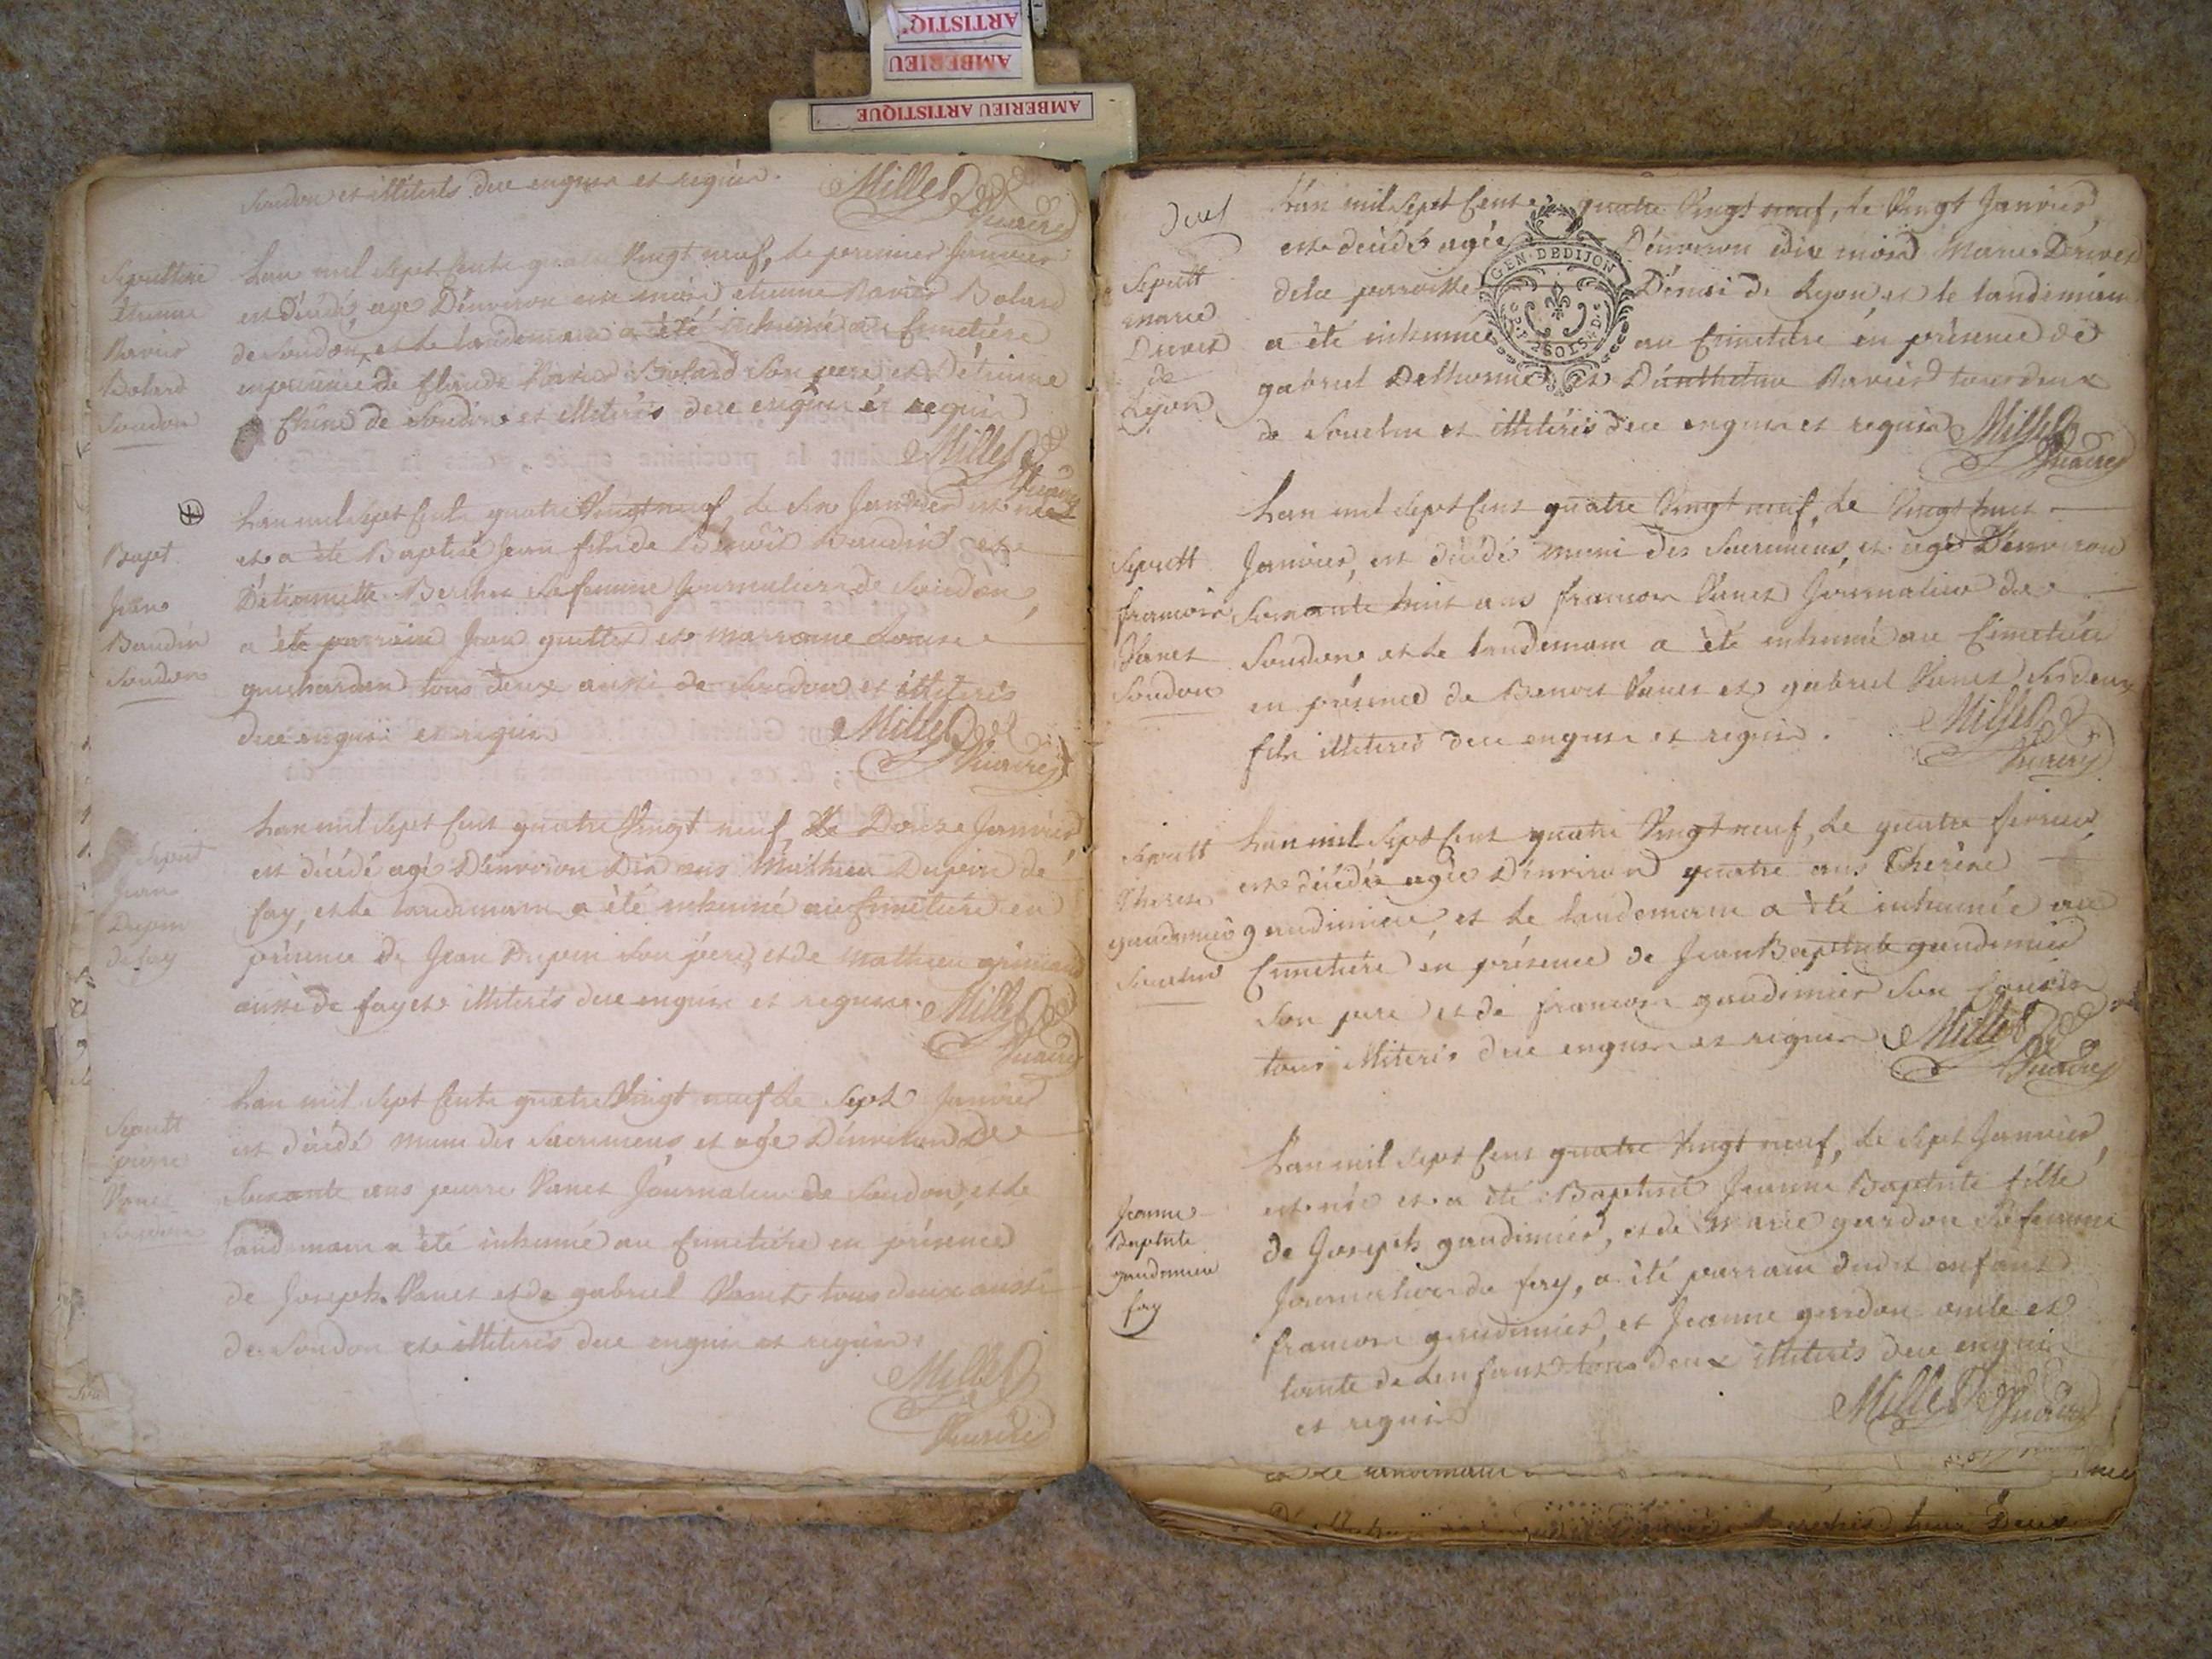 ARTISTIQ
AMBERIEU
AMBERIEU ARTISTIQUE
Soudon et illiterés dece enquis et requis.
Millet
Vicaire
Sepulture
Etienne
Ravier
Bolard
Soudon
Lan mil sept Cents quatre Vingt neuf, le premier Janvier
est décédé, agé D'environ un mois etienne Ravier Bolard
de Soudon, et le landemain a été inhumé au Cimetiére
en présence de Claude Ravier Bolard son pere, et D'étienne
de Soudon et illiterés dece enquis et requis
Millet
Vicaire
Bapt
Jean
Baudin
Soudon
Lan mil sept Cents quatre Vingt neuf, le six Janvier est né
et a été Baptisé Jean fils de Benoit Baudin et
D'étiennette Bercher sa femme Journaliers de Soudon,
a été parrain Jean guillet et marraine Louise
guichardon tous deux aussi de Soudon et illiterés
dece enquis et requis
Millet
Vicaire
Sepult
Jean
Dupuin
de fay
Lan mil sept Cent quatre Vingt neuf, le Douze Janvier,
est décédé agé D'environ Dix ans Mathieu Dupuin de
fay, et le landemain a été inhumé au Cimetiére en
présence de Jean Dupuin son pére, et de mathieu grimaud
aussi de fay et illiterés dece enquis et requis.
Millet
Vicaire
Sepult
pierre
Vanet
Soudon
Lan mil sept Cents quatre Vingt neuf le sept Janvier
est décédé muni des Sacremens, et agé D'environ De
Soixante ans pierre Vanet Journalier de Soudon, et le
landemain a été inhumé au Cimetiére en présence
de Joseph Vanet et de gabriel Vanet tous deux aussi
de Soudon et illiterés dece enquis et requis.
Millet
Vicaire
deux
Sepult
marie
Drevet
de
Lyon
GEN. DE DIJON
Lan mil sept Cents quatre Vingt neuf, le Vingt Janvier,
est décédé agée D'environ dix mois Marie Drevet
de la paroisse D'énai de Lyon et le landemain
a été inhumée au Cimetiére en présence de
gabriel Delhorme et D'anthelme Ravier tous deux
de Souclin et illiterés dece enquis et requis
Millet
Vicaire
Sepult
francois
Vanet
Soudon
Lan mil sept Cent quatre Vingt neuf, le Vingt huit
Janvier, est décédé muni des Sacremens, et agé D'environ
Soixante huit ans francois Vanet Journalier de
Soudon et le landemain a été inhumé au Cimetiére
en présence de Benoit Vanet et gabriel Vanet ses deux
fils illiterés dece enquis et requis.
Millet
Vicaire
Sepult
Therese
gaudimier
Souclin
Lan mil sept Cent quatre Vingt neuf, le quatre fevrier,
est décédée agée D'environ quatre ans Thérése
gaudimier, et le landemain a été inhumée au
Cimetiére en présence de Jean Baptiste gaudimier
son pere et de francois gaudimier son Cousin
tous illiterés dece enquis et requis
Millet
Vicaire
Jeanne
Baptiste
gaudimier
fay
Lan mil sept Cent quatre Vingt neuf, le sept Janvier,
est née et a été Baptisée Jeanne Baptiste fille
de Joseph gaudimier, et de Marie gardon sa femme
Journaliers de fay, a été parrain dudit enfant
francois gaudimier, et Jeanne gardon oncle et
tante de lenfant tous deux illiterés dece enquis
et requis
Millet Vicaire
et le landemain